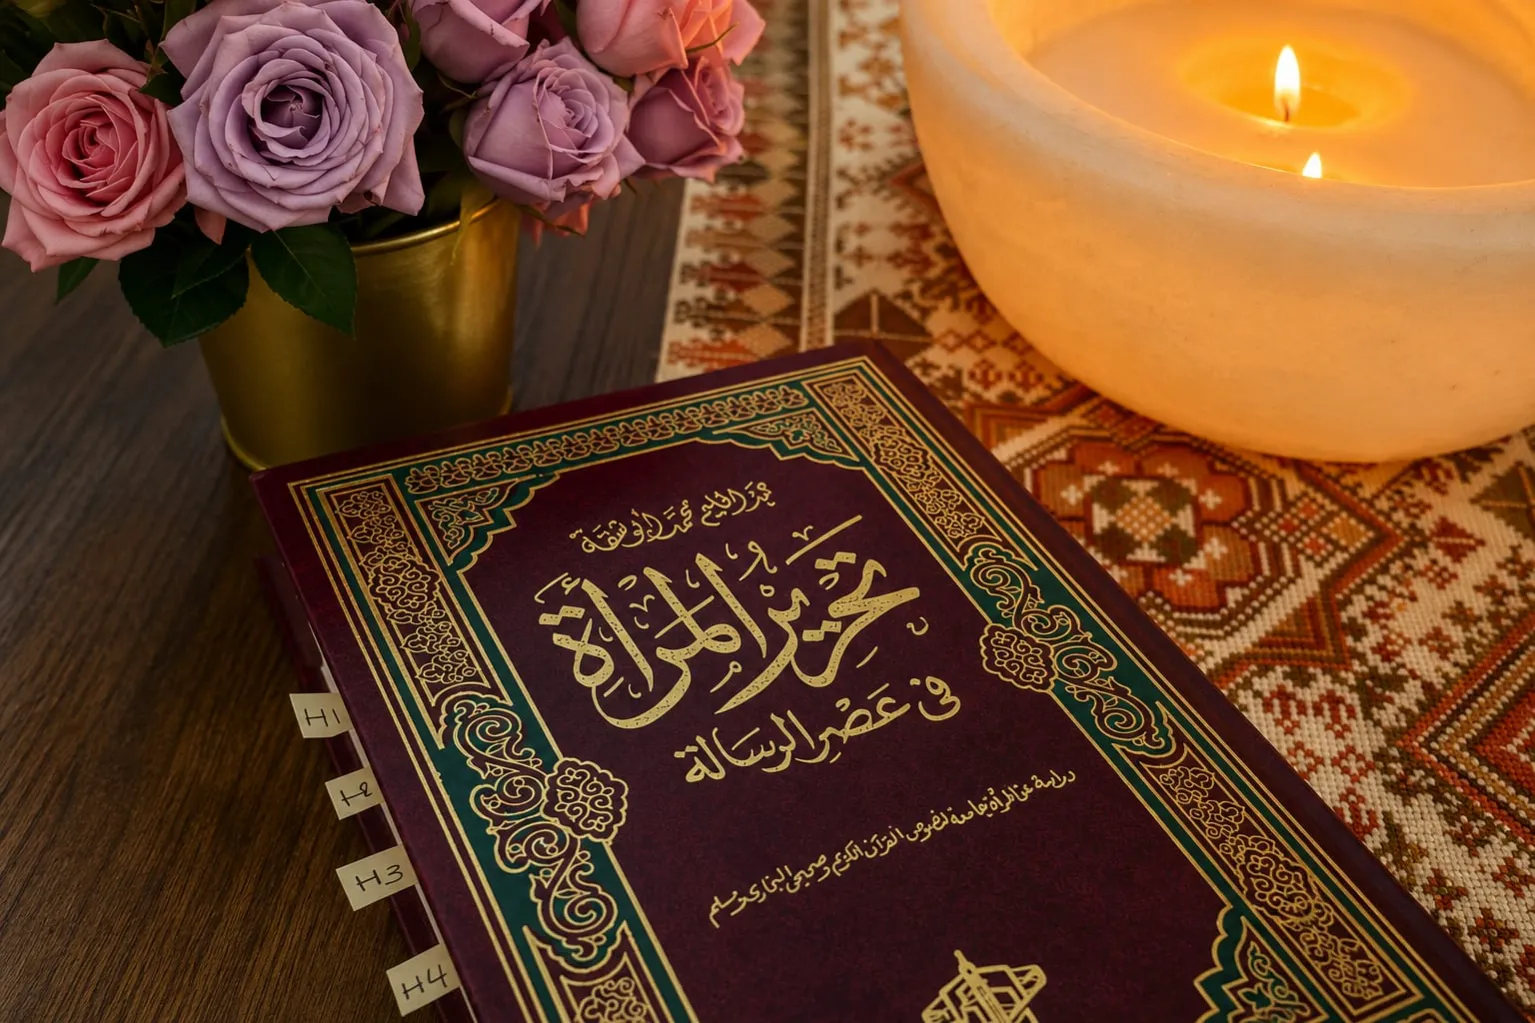 عبد الحليم محمد أبو شقة
تحرير المرأة
في عصر الرسالة
دراسة عن المرأة جامعة لنصوص القرآن الكريم وصحيحي البخاري ومسلم
H1
H2
H3
H4